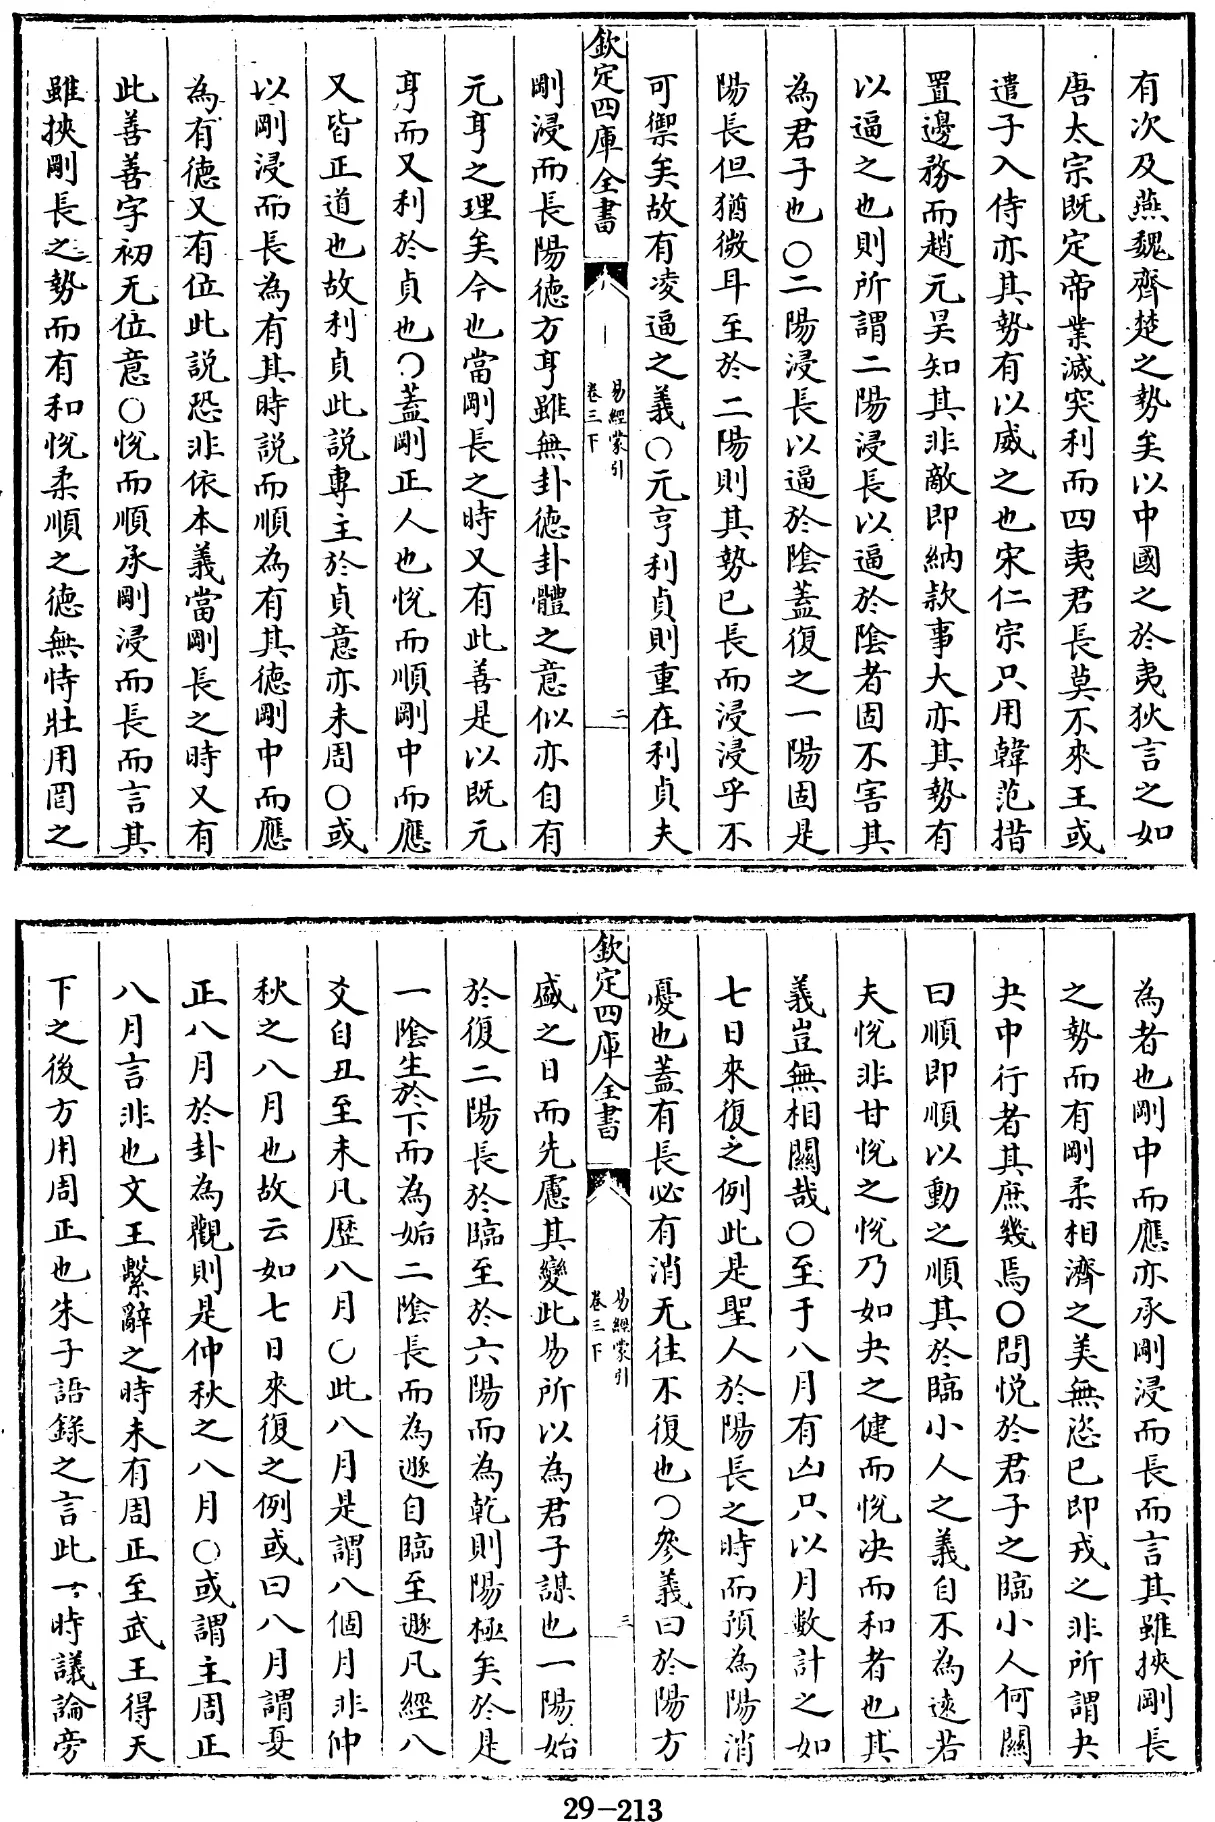 有次及燕魏齊楚之勢矣以中國之於夷狄言之如
唐太宗既定帝業滅突利而四夷君長莫不來王或
遣子入侍亦其勢有以威之也宋仁宗只用韓范措
置邊務而趙元昊知其非敵即納款事大亦其勢有
以逼之也則所謂二陽浸長以逼於陰者固不害其
為君子也○二陽浸長以逼於陰蓋復之一陽固是
陽長但猶微耳至於二陽則其勢已長而浸浸乎不
可禦矣故有凌逼之義○元亨利貞則重在利貞夫
欽定四庫全書
易經蒙引
卷三下
二
剛浸而長陽德方亨雖無卦德卦體之意似亦自有
元亨之理矣今也當剛長之時又有此善是以既元
亨而又利於貞也○蓋剛正人也悅而順剛中而應
又皆正道也故利貞此説專主於貞意亦未周○或
以剛浸而長為有其時説而順為有其德剛中而應
為有德又有位此説恐非依本義當剛長之時又有
此善善字初无位意○悅而順承剛浸而長而言其
雖挾剛長之勢而有和悅柔順之德無恃壯用罔之
為者也剛中而應亦承剛浸而長而言其雖挾剛長
之勢而有剛柔相濟之美無恣已即戎之非所謂夬
夬中行者其庶幾焉○問悅於君子之臨小人何關
曰順即順以動之順其於臨小人之義自不為遠若
夫悅非甘悅之悅乃如夬之健而悅決而和者也其
義豈無相關哉○至于八月有凶只以月數計之如
七日來復之例此是聖人於陽長之時而預為陽消
憂也蓋有長必有消无往不復也○參義曰於陽方
欽定四庫全書
易經蒙引
卷三下
三
盛之日而先慮其變此易所以為君子謀也一陽始
於復二陽長於臨至於六陽而為乾則陽極矣於是
一陰生於下而為姤二陰長而為遯自臨至遯凡經八
爻自丑至未凡歷八月○此八月是謂八個月非仲
秋之八月也故云如七日來復之例或曰八月謂夏
正八月於卦為觀則是仲秋之八月○或謂主周正
八月言非也文王繫辭之時未有周正至武王得天
下之後方用周正也朱子語錄之言此一時議論旁
29-213